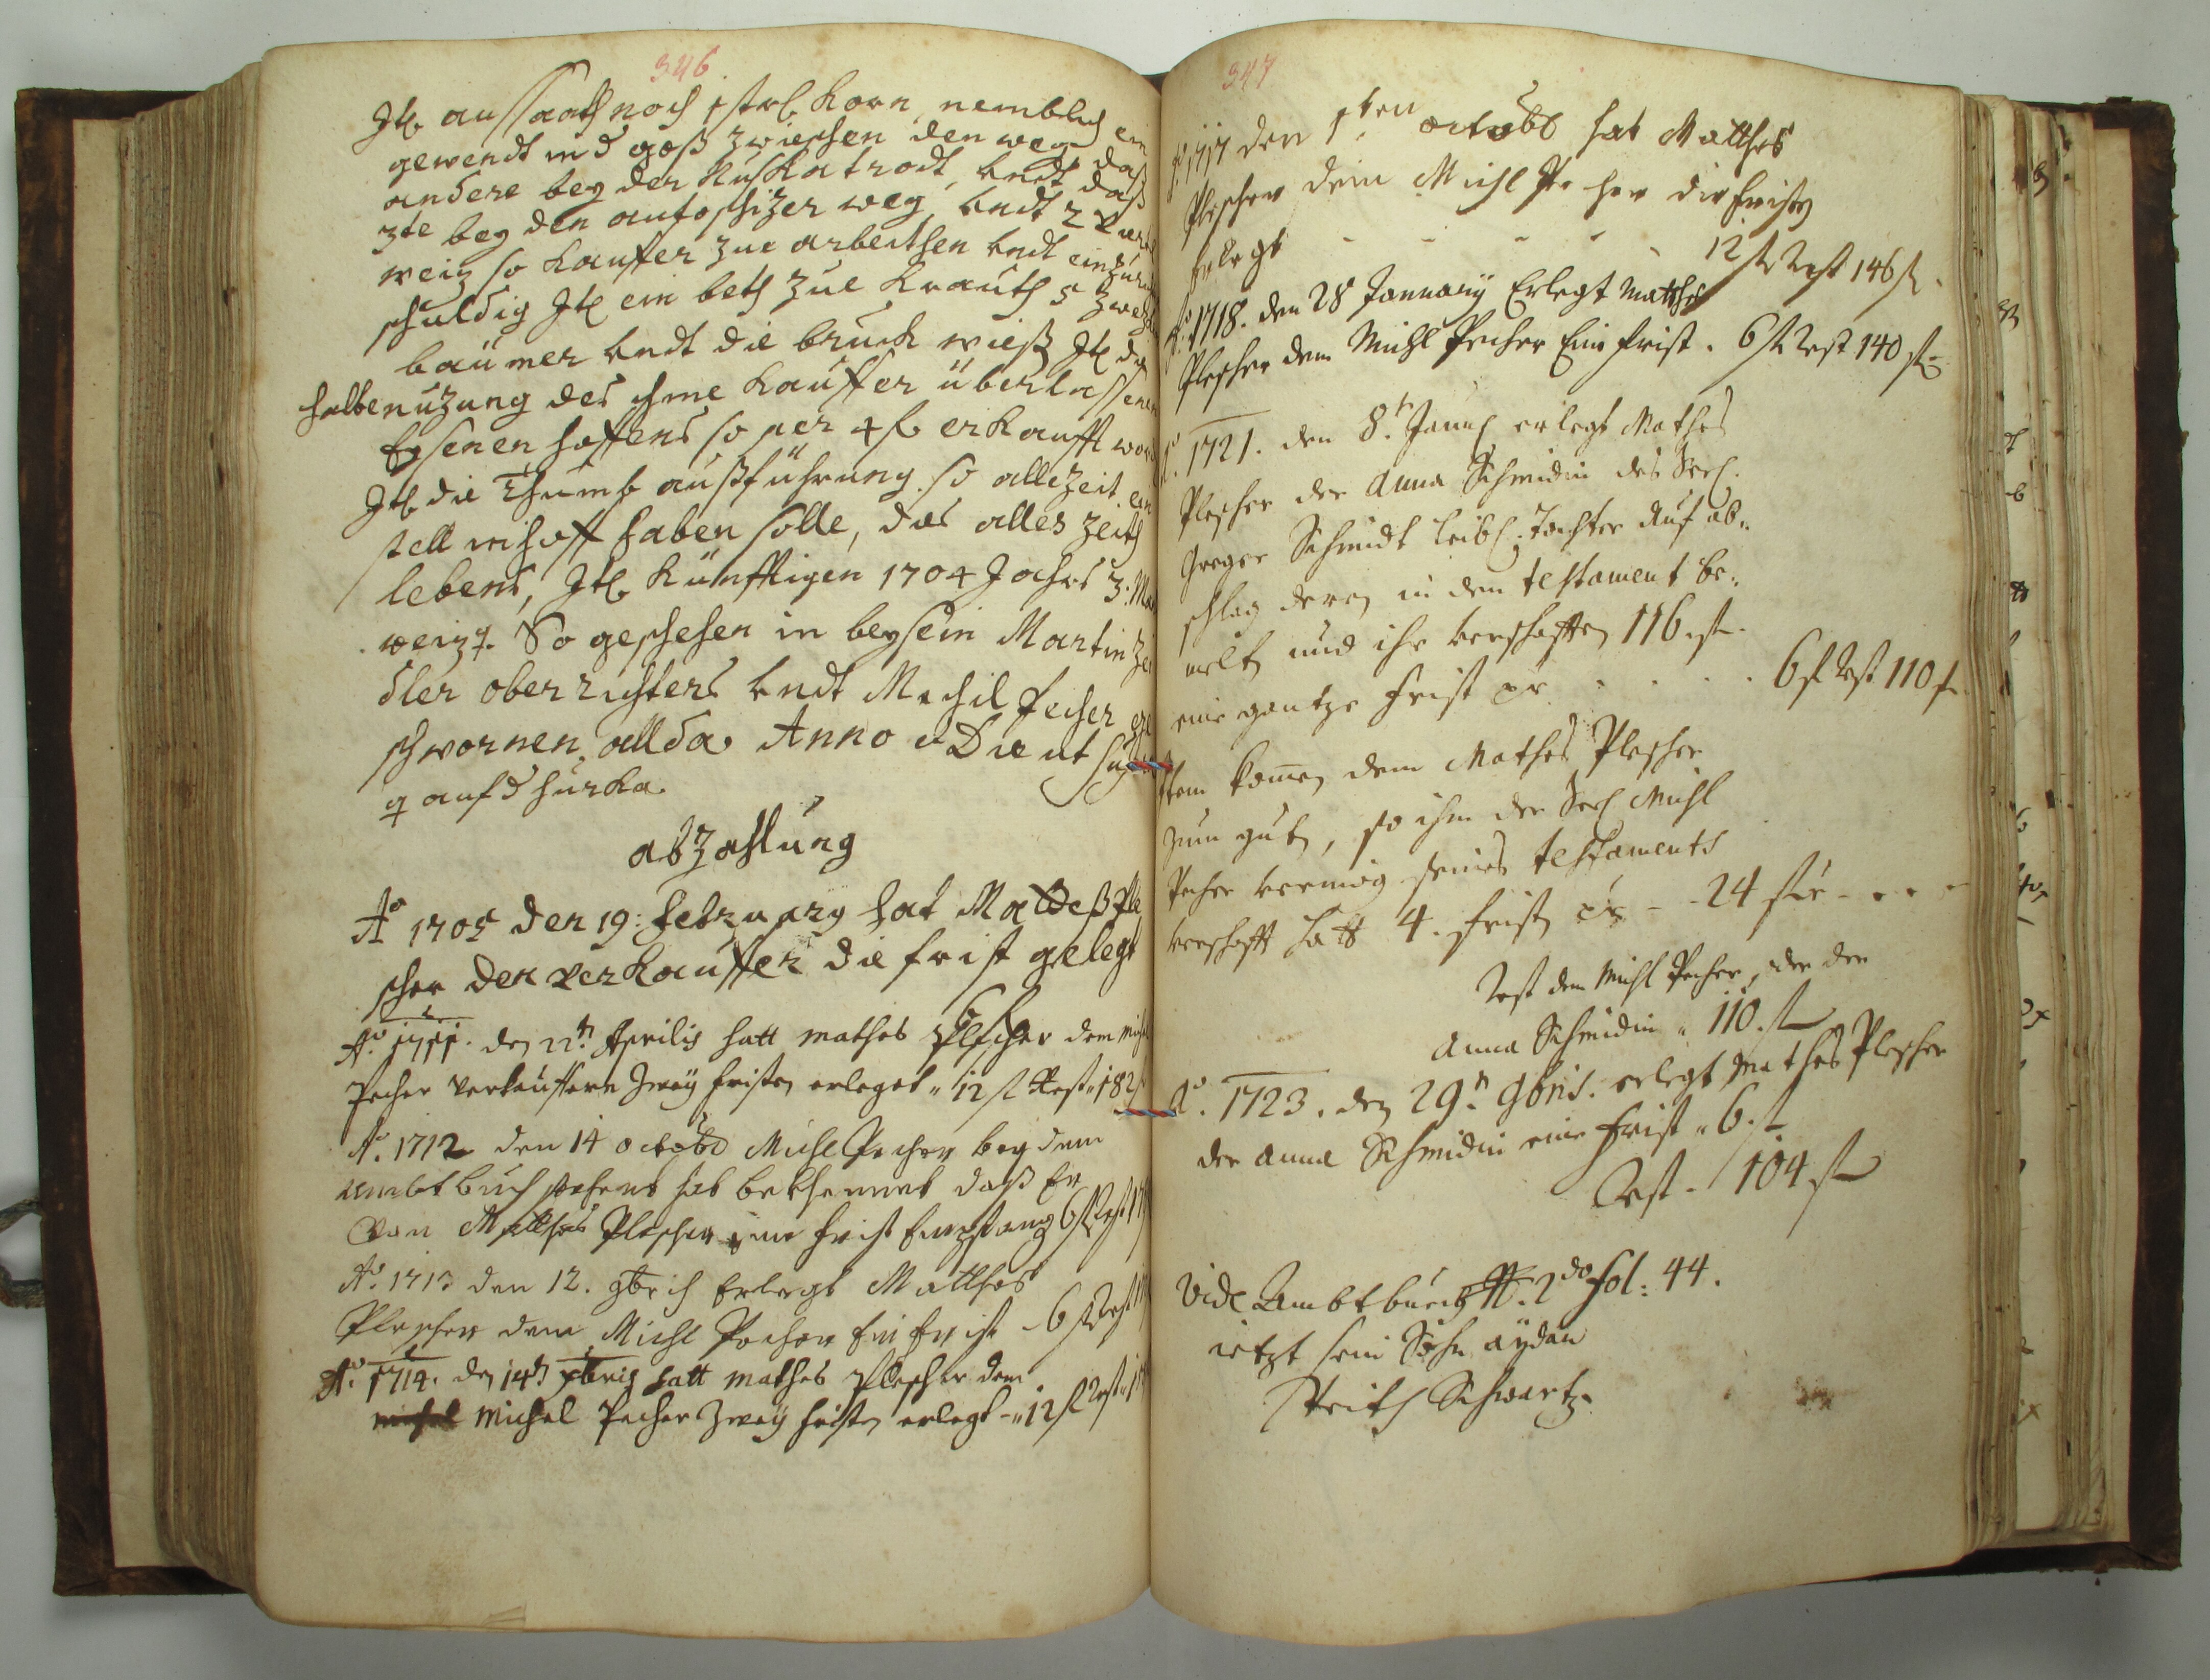 346
Jtl aussaath noch 1 strl Korn, nemblich ein
gewendt und goß zwieschen den weg
andere bey der Ruskatrodt, undt daß
3te bey den autoschizer weg, undt 2 viert
weiz so Kauffer zue arbeithen undt einzu
schuldig Jtl ein beth zue Krauth 5 zwe
baümer undt die bruch wieß Jtl die
halbe nuzung des ihme Kauffer überlassenen
Eysenen haffens so per 4 fl erkaufft word
Jtl die Thumb außführung so allezeit ein
stell im hoff haben solle, das alles zeith
lebens, Jtl Künfftigen 1704 Jahrs 3.
weiz. So geschehen in beysein Martin
dler oberrichters undt Michil Pecher ge
schwornen allda Anno et Die ut
auf d hurka
abzahlung
Ao 1705 den 19: February hat Mattheß Ple
scher den verkauffer die frist gelegt
6 fl
Ao. 1711. den 22tn Aprilis hatt mathes Plescher dem Mich
Pecher verkauffern Zweÿ fristen erleget " 12 fl Rest " 182
Ao. 1712 den 14 octobr Michl Pecher beÿ dem
Ambtbuch stehent hat bekhennet daß Er
von Matthes Plescher eine frist Empfang 6 fl Rest 17
Ao. 1713 den 12. 9bris Erlegt Matthes
Plescher dem Michl Pecher Ein frist - 6 fl Rest 17
Ao. 1714. den 14tn xbris hatt mathes Plescher dem
Michel Pecher Zweÿ fristen erlegt - " 12 fl Rest
347
Ao. 1717 den 1ten octobr hat Matthes
Plescher dem Michl Pecher die fristen
Erlegt - - - - - 12 fl Rest 146 fl.
Ao. 1718. den 28 January Erlegt Matthes
Plescher dem Michl Pecher Eine frist. 6 fl Rest 140 fl
Ao. 1721. den 8t. Janu. erlegt Mathes
Plescher der Anna Schmidin des Seel.
Greger Schmidt leibl. Tochter Auf ab„
schlag deren in dem testament be„
melten und ihr verschafften 116 fl.
eine gantze frist pr . . . . 6 fl Rest 110 fl.
Item komen dem Mathes Plescher
zum guten, so ihm der Seel Michl
Pecher vermög seines testaments
verschafft hatt 4. fristen pr - - 24 fl
Rest dem Michl Pecher, oder der
Anna Schmidin " 110. fl
Ao. 1723. den 29tn 9bris. erlegt Mathes Plescher
der Anna Schmidin eine frist " 6. fl
Rest - 104 fl
Vide Ambtbuech 2do fol: 44.
ietzt sein Sohn aÿdan
Veith Schwartz.